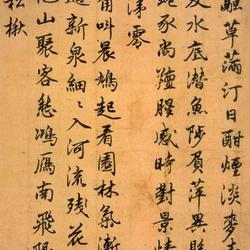 醺草滿汀日酣煙淡麥
水底潛魚陟負萍異
蛇豕尚羶腥感時對景情
涕零
角叫晨鳩起看園林氣漸
新泉細細入河流殘花
山聚客愁鳴雁南飛
松楸